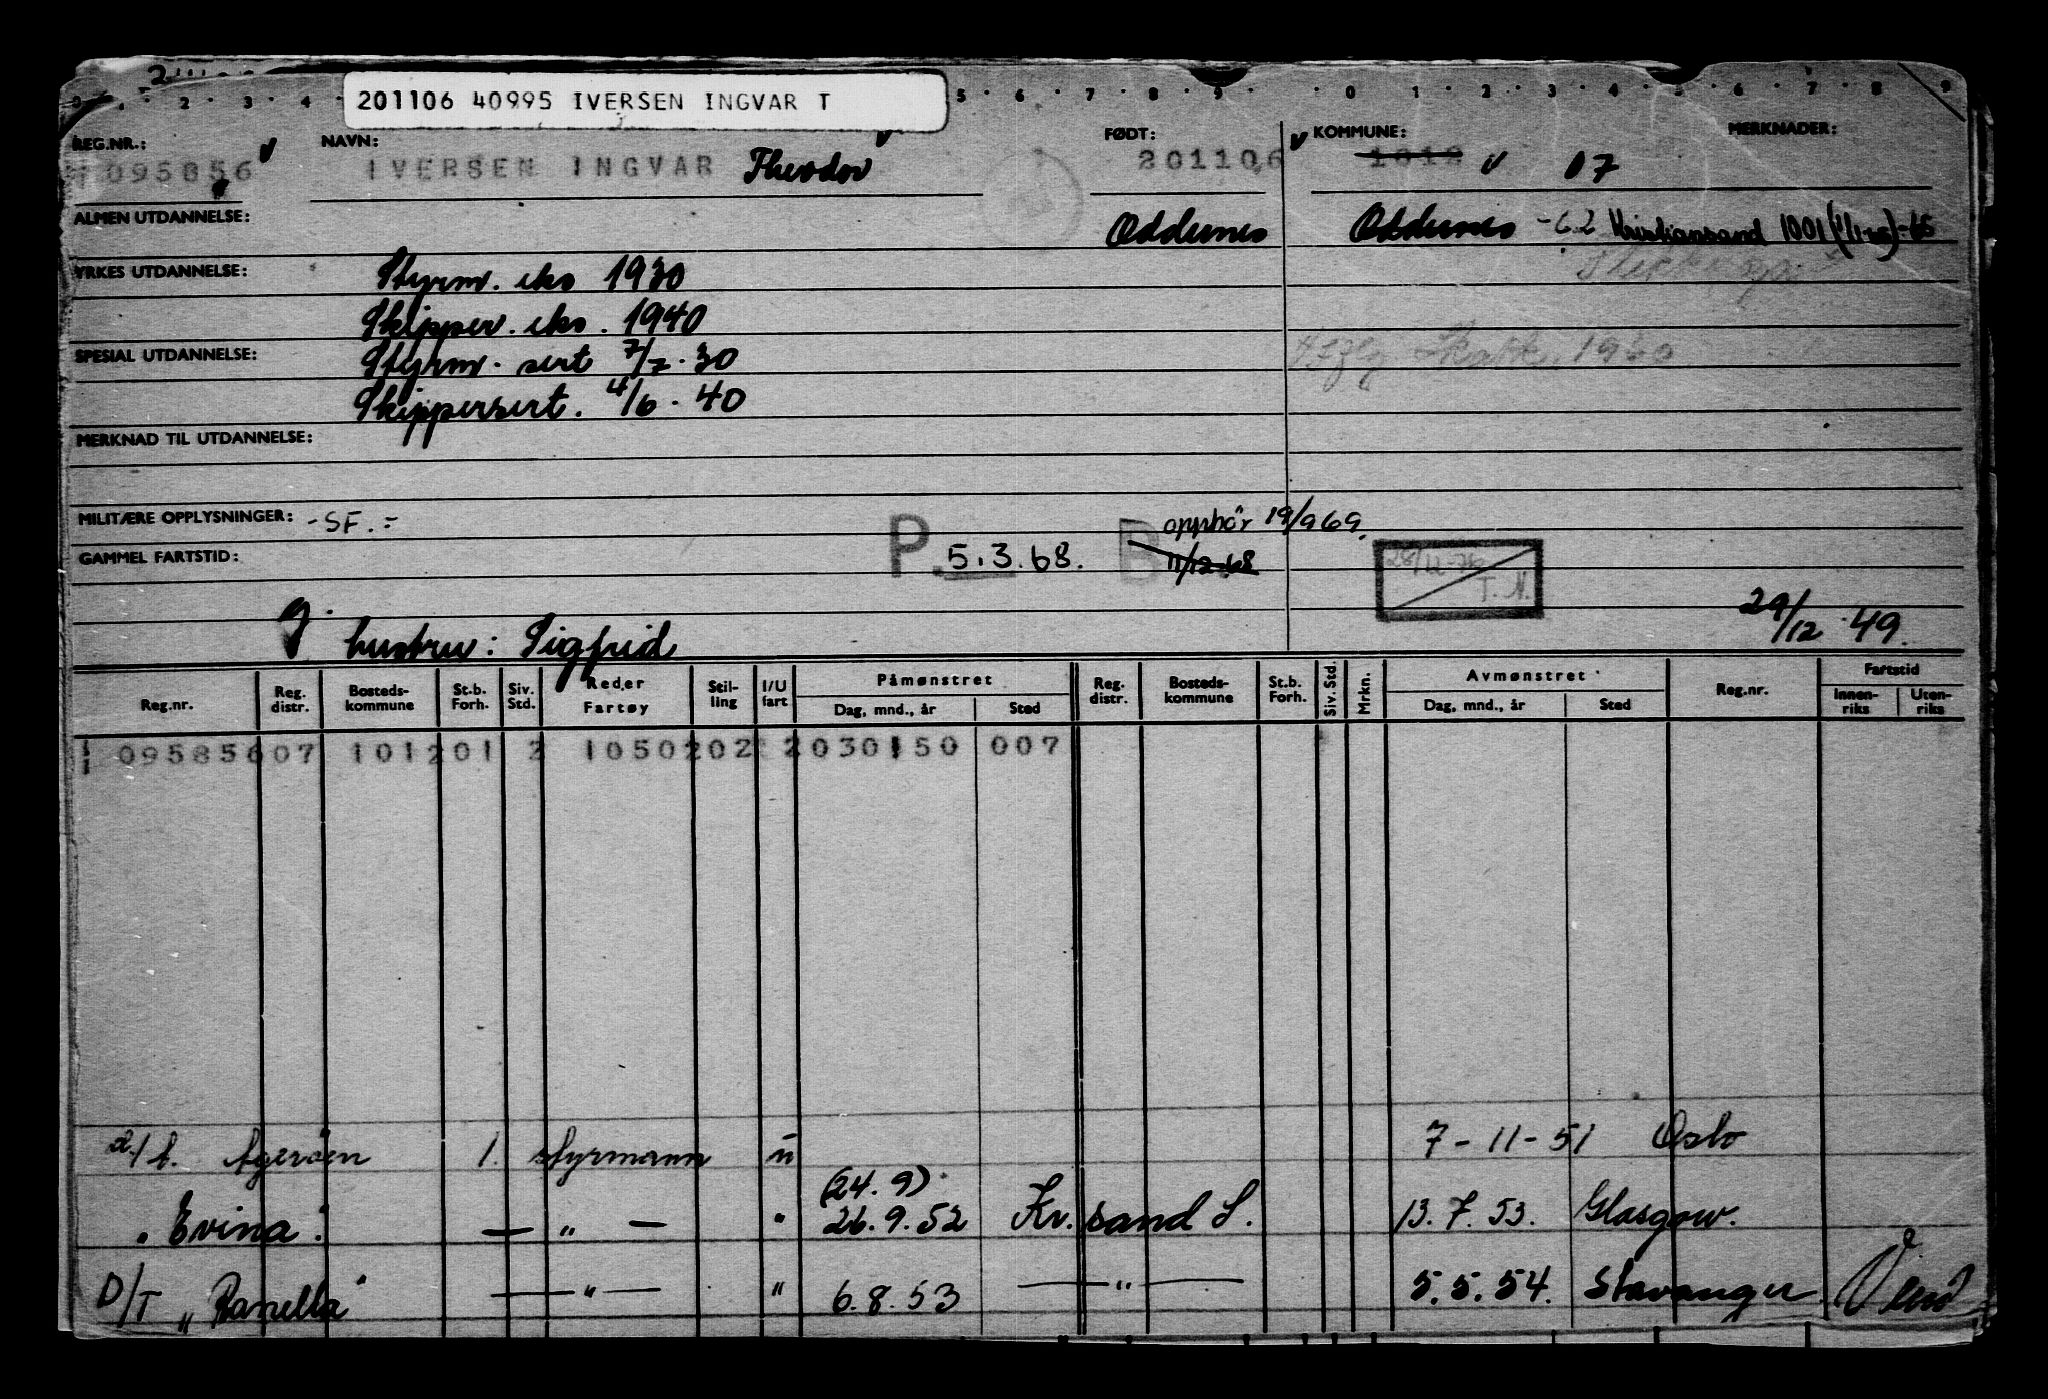 201106 40995 IVERSEN INGVAR T
REG.NR.: NAVN: FØDT: KOMMUNE: MERKNADER:
095856 IVERSEN INGVAR Theodor 201106 1012 07
ALMEN UTDANNELSE: Oddernes Oddernes -62 Kristiansand 1001 -65
YRKES UTDANNELSE: Styrm. eks 1930
Skipper. eks. 1940
SPESIAL UTDANNELSE: Styrm. sert 7/7.30
Skippersert. 4/6.40
MERKNAD TIL UTDANNELSE:
MILITÆRE OPPLYSNINGER: -SF.- P. 5.3.68. B opphør 19/9 69.
GAMMEL FARTSTID: 11/12-68
T.N.
g. hustru: Sigfrid 29/12 49.
Reg.nr. Reg. distr. Bosteds-kommune St.b. Forh. Siv. Std. Reder Fartøy Stil-ling I/U fart Påmønstret Dag, mnd., år Sted Reg. distr. Bosteds-kommune St.b. Forh. Siv. Std. Mrkn. Avmønstret Dag, mnd., år Sted Reg.nr. Fartstid Innen-riks Uten-riks
095856 07 1012 01 2 1050202 2 030150 007
1. styrmann u 7-11-51 Oslo
(24.9)
" Evina" — " — " 26.9.52 Kr.sand S. 13.7.53. Glasgow.
D/T "Ranella" — " — " 6.8.53 — " — 5.5.54. Stavanger Vend